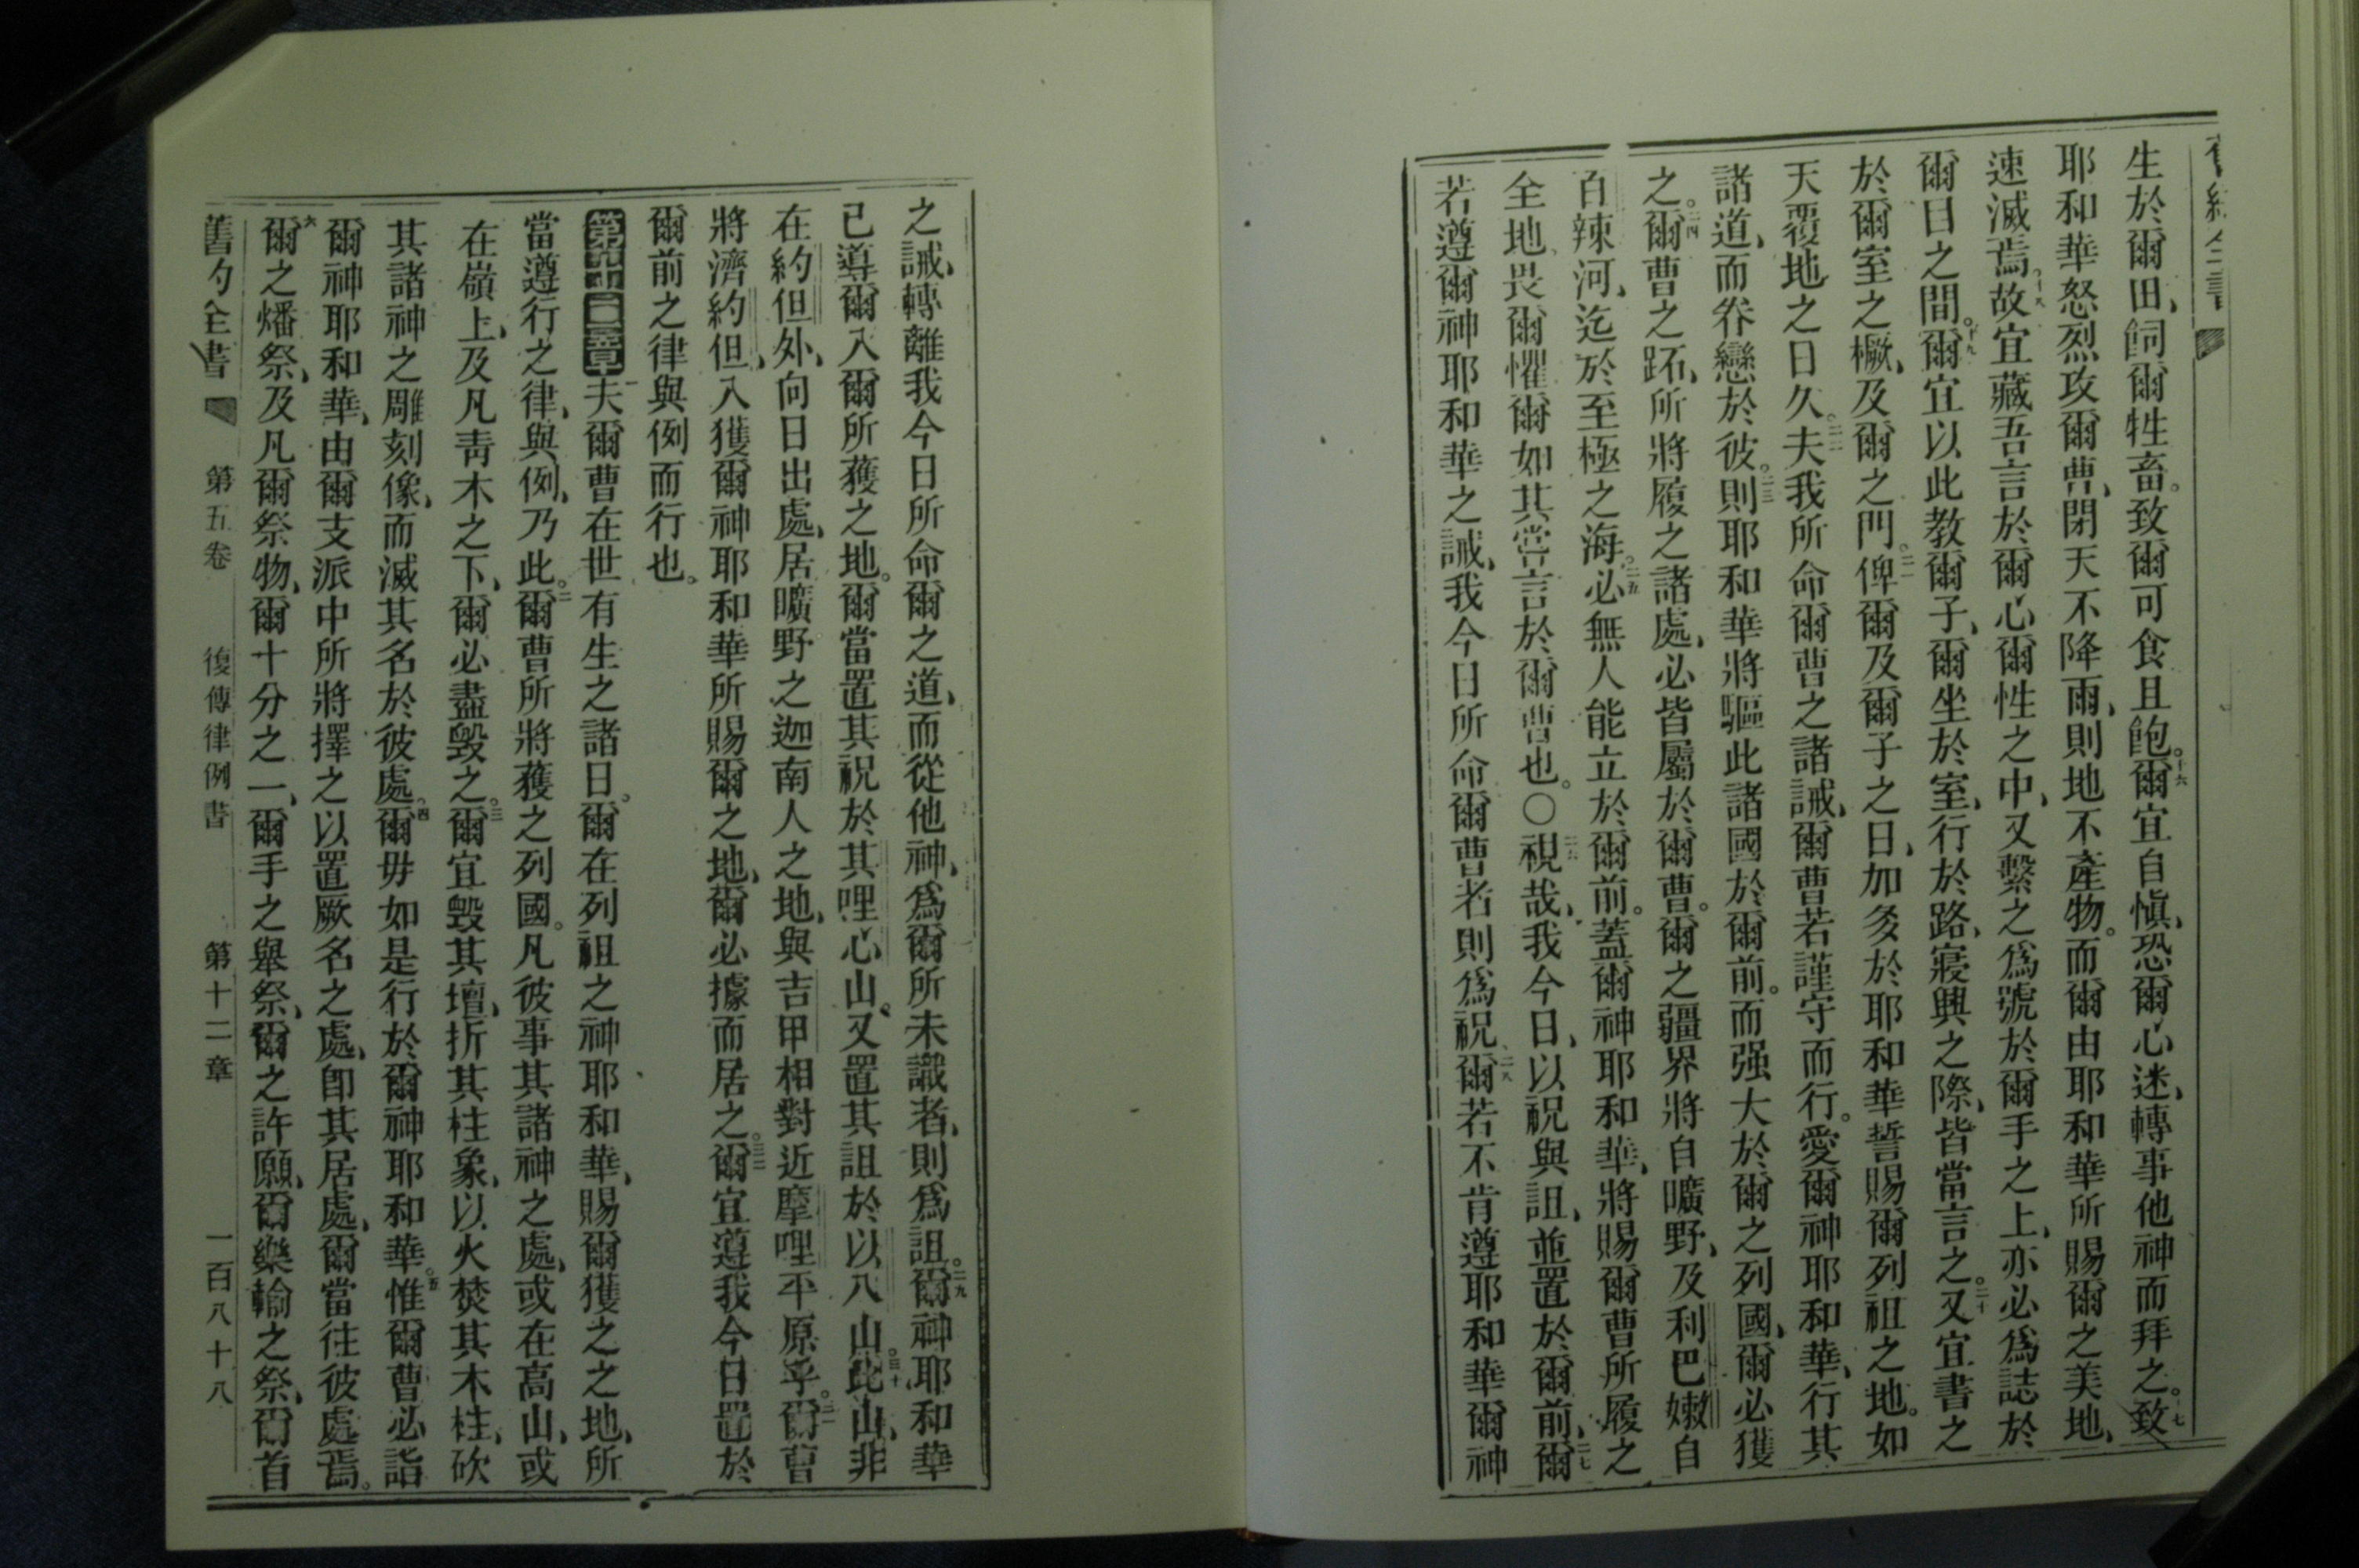 生於爾田、飼爾牲畜。致爾可食且飽。十六爾宜自愼、恐爾心迷、轉事他神而拜之。十七致
耶和華怒烈攻爾曹、閉天不降雨、則地不產物。而爾由耶和華所賜爾之美地、
速滅焉。十八故宜藏吾言於爾心爾性之中、又繫之爲號於爾手之上、亦必爲誌於
爾目之間。十九爾宜以此教爾子、爾坐於室、行於路、寢興之際、皆當言之。二十又宜書之
於爾室之橛、及爾之門。二一俾爾及爾子之日、加多於耶和華誓賜爾列祖之地。如
天覆地之日久。二二夫我所命爾曹之諸誡、爾曹若謹守而行。愛爾神耶和華、行其
諸道、而眷戀於彼。二三則耶和華將驅此諸國於爾前。而强大於爾之列國、爾必獲
之。二四爾曹之跖、所將履之諸處、必皆屬於爾曹。爾之疆界將自曠野、及利巴嫩自
百辣河、迄於至極之海。二五必無人能立於爾前。蓋爾神耶和華、將賜爾曹所履之
全地畏爾懼爾如其嘗言於爾曹也。○二六視哉、我今日、以祝與詛、並置於爾前、二七爾
若遵爾神耶和華之誡、我今日所命爾曹者則爲祝、二八爾若不肯遵耶和華爾神
之誡、轉離我今日所命爾之道、而從他神、爲爾所未識者、則爲詛。二九爾神耶和華
已導爾入爾所獲之地。爾當置其祝於其哩心山、又置其詛於以八山。三十此山、非
在約但外、向日出處、居曠野之迦南人之地、與吉甲相對近摩哩平原乎。三一爾曹
將濟約但、入獲爾神耶和華所賜爾之地、爾必據而居之。三二爾宜遵我今日置於
爾前之律與例而行也。
第十二章一夫爾曹在世有生之諸日。爾在列祖之神耶和華、賜爾獲之之地、所
當遵行之律、與例、乃此。二爾曹所將獲之列國。凡彼事其諸神之處、或在高山、或
在嶺上、及凡靑木之下、爾必盡毀之。三爾宜毀其壇、折其柱象、以火焚其木柱、砍
其諸神之雕刻像、而滅其名於彼處。四爾毋如是行於爾神耶和華。五惟爾曹必詣
爾神耶和華、由爾支派中所將擇之以置厥名之處、卽其居處、爾當往彼處焉。
六爾之燔祭、及凡爾祭物、爾十分之一、爾手之舉祭、爾之許願、爾樂輸之祭、爾首
舊約全書 第五卷 復傳律例書 第十二章 一百八十八